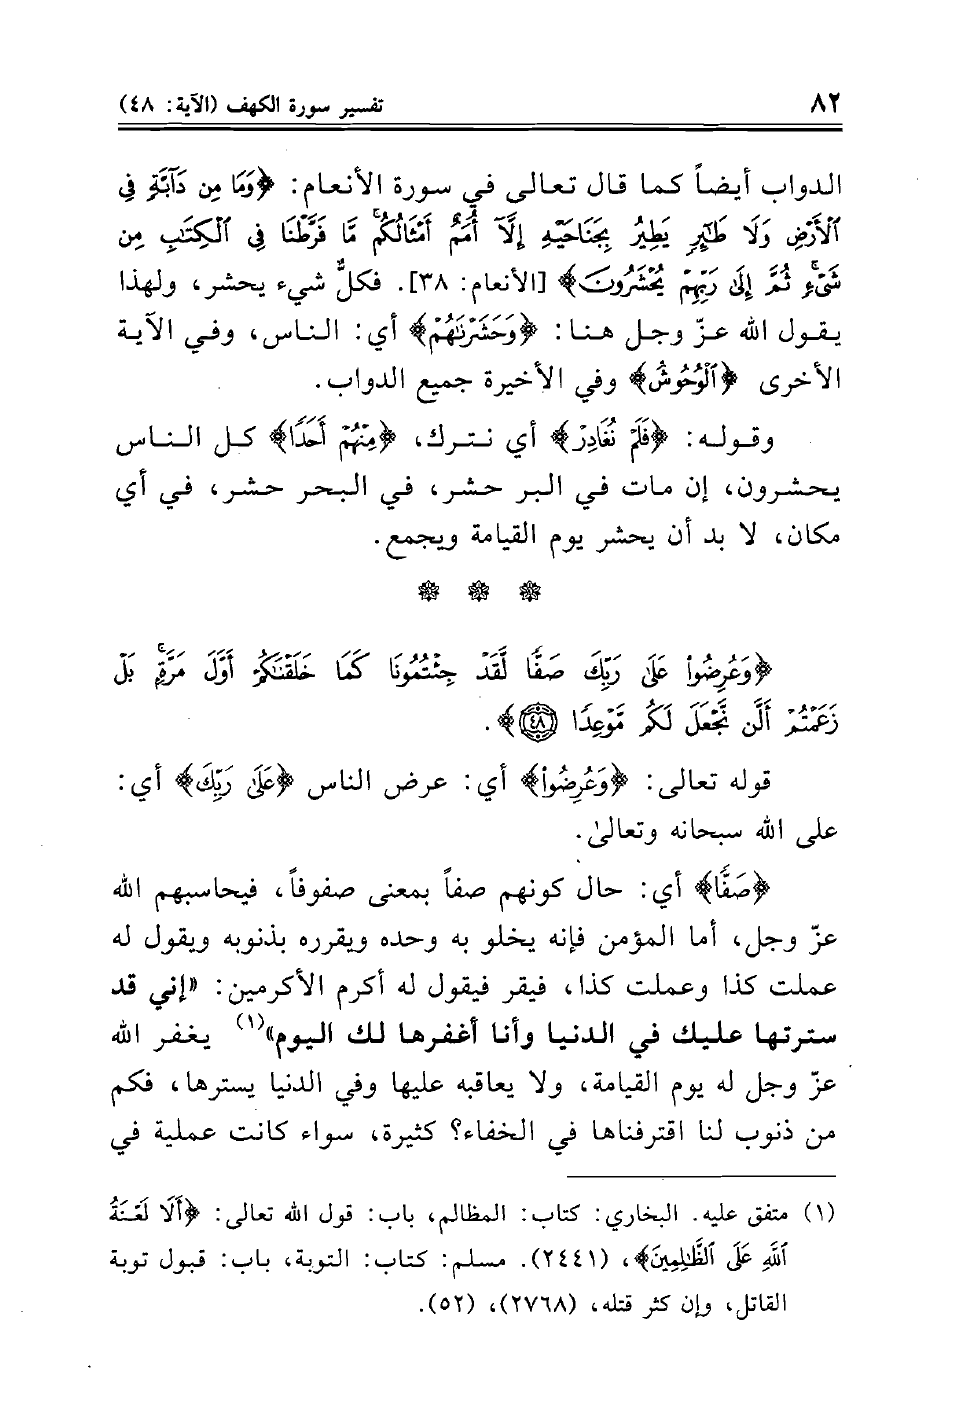 ٨٢ تفسير سورة الكهف (الآية: ٤٨)
الدواب أيضاً كما قال تعالى في سورة الأنعام: ﴿وَمَا مِن دَآبَّةٖ فِي
ٱلۡأَرۡضِ وَلَا طَٰٓئِرٖ يَطِيرُ بِجَنَاحَيۡهِ إِلَّآ أُمَمٌ أَمۡثَالُكُمۚ مَّا فَرَّطۡنَا فِي ٱلۡكِتَٰبِ مِن
شَيۡءٖۚ ثُمَّ إِلَىٰ رَبِّهِمۡ يُحۡشَرُونَ﴾ [الأنعام: ٣٨]. فكلُّ شيء يحشر، ولهذا
يقول الله عزّ وجل هنا: ﴿وَحَشَرۡنَٰهُمۡ﴾ أي: الناس، وفي الآية
الأخرى ﴿ٱلۡوُحُوشُ﴾ وفي الأخيرة جميع الدواب.
وقوله: ﴿فَلَمۡ نُغَادِرۡ﴾ أي نترك، ﴿مِنۡهُمۡ أَحَدٗا﴾ كل الناس
يحشرون، إن مات في البر حشر، في البحر حشر، في أي
مكان، لا بد أن يحشر يوم القيامة ويجمع.
﴿وَعُرِضُواْ عَلَىٰ رَبِّكَ صَفّٗا لَّقَدۡ جِئۡتُمُونَا كَمَا خَلَقۡنَٰكُمۡ أَوَّلَ مَرَّةِۭۚ بَلۡ
زَعَمۡتُمۡ أَلَّن نَّجۡعَلَ لَكُم مَّوۡعِدٗا ٤٨﴾.
قوله تعالى: ﴿وَعُرِضُواْ﴾ أي: عرض الناس ﴿عَلَىٰ رَبِّكَ﴾ أي:
على الله سبحانه وتعالىٰ.
﴿صَفّٗا﴾ أي: حال كونهم صفاً بمعنى صفوفاً، فيحاسبهم الله
عزّ وجل، أما المؤمن فإنه يخلو به وحده ويقرره بذنوبه ويقول له
عملت كذا وعملت كذا، فيقر فيقول له أكرم الأكرمين: «إني قد
سترتها عليك في الدنيا وأنا أغفرها لك اليوم»(١) يغفر الله
عزّ وجل له يوم القيامة، ولا يعاقبه عليها وفي الدنيا يسترها، فكم
من ذنوب لنا اقترفناها في الخفاء؟ كثيرة، سواء كانت عملية في
(١) متفق عليه. البخاري: كتاب: المظالم، باب: قول الله تعالى: ﴿أَلَا لَعۡنَةُ
ٱللَّهِ عَلَى ٱلظَّٰلِمِينَ﴾، (٢٤٤١). مسلم: كتاب: التوبة، باب: قبول توبة
القاتل، وإن كثر قتله، (٢٧٦٨)، (٥٢).